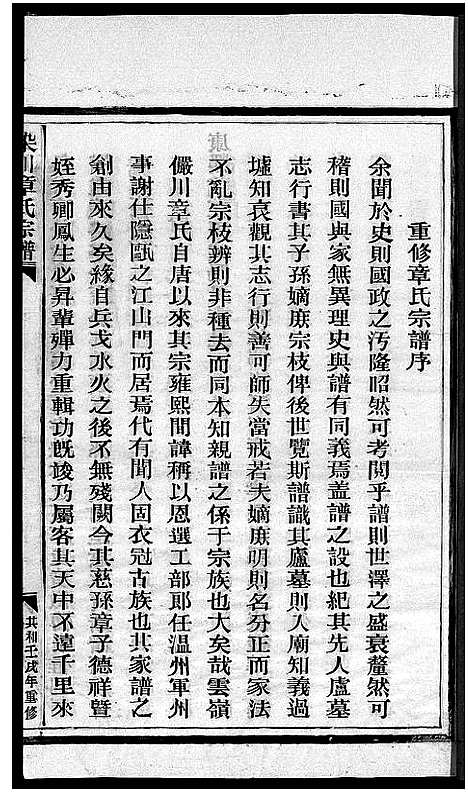 重修章氏宗譜序
余聞於史則國政之汚隆昭然可考閱乎譜則世澤之盛衰釐然可
稽則國與家無異理史與譜有同義焉蓋譜之設也紀其先人廬墓
志行書其子孫嫡庶宗枝俾後世覽斯譜識其廬墓則入廟知義過
墟知哀觀其志行則善可師失當戒若夫嫡庶明則名分正而家法
不亂宗枝辨則非種去而同本知親譜之係于宗族也大矣哉雲嶺
儼川章氏自唐以來其宗雍熙間諱稱以恩選工部郎任温州軍州
事謝仕隱甌之江山門而居焉代有聞人固衣冠古族也其家譜之
創由來久矣緣自兵戈水火之後不無殘闕今其慈孫章子德祥曁
姪秀卿鳳生必昇輩殫力重輯功既竣乃屬客其天中不遠千里來
川章氏宗譜
共和壬戌年重修